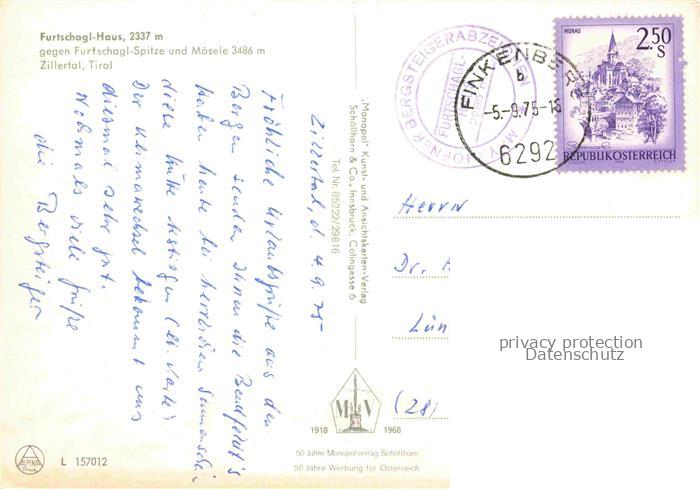 Furtschagl-Haus, 2337 m
gegen Furtschagl-Spitze und Mösele 3486 m
Zillertal, Tirol
Zillertal, d. 4.9.75
Fröhliche Urlaubsgrüße aus den
Bergen senden Ihnen die Bendfeldt's
haben heute bei herrlichem Sonnenschein
diese Hütte bestiegen (lt. Karte)
Der Klimawechsel bekommt uns
diesmal sehr gut.
Nochmals viele Grüße
die Bergsteiger
Monopol Kunst- und Ansichtskarten-Verlag
Schöllhorn & Co., Innsbruck, Colingasse 6
Tel. Nr. 05222/29816
MV
1918 1968
50 Jahre Monopolverlag Schöllhorn
50 Jahre Werbung für Österreich
ALPINA
Druck
L 157012
BERGSTEIGERABZEICHEN
FURTSCHAGL-
FINKENBERG
b
-5.-9.75-18
6292
MURAU
2.50
S
REPUBLIK ÖSTERREICH
Herrn
Dr.
Lün
(28)
privacy protection
Datenschutz